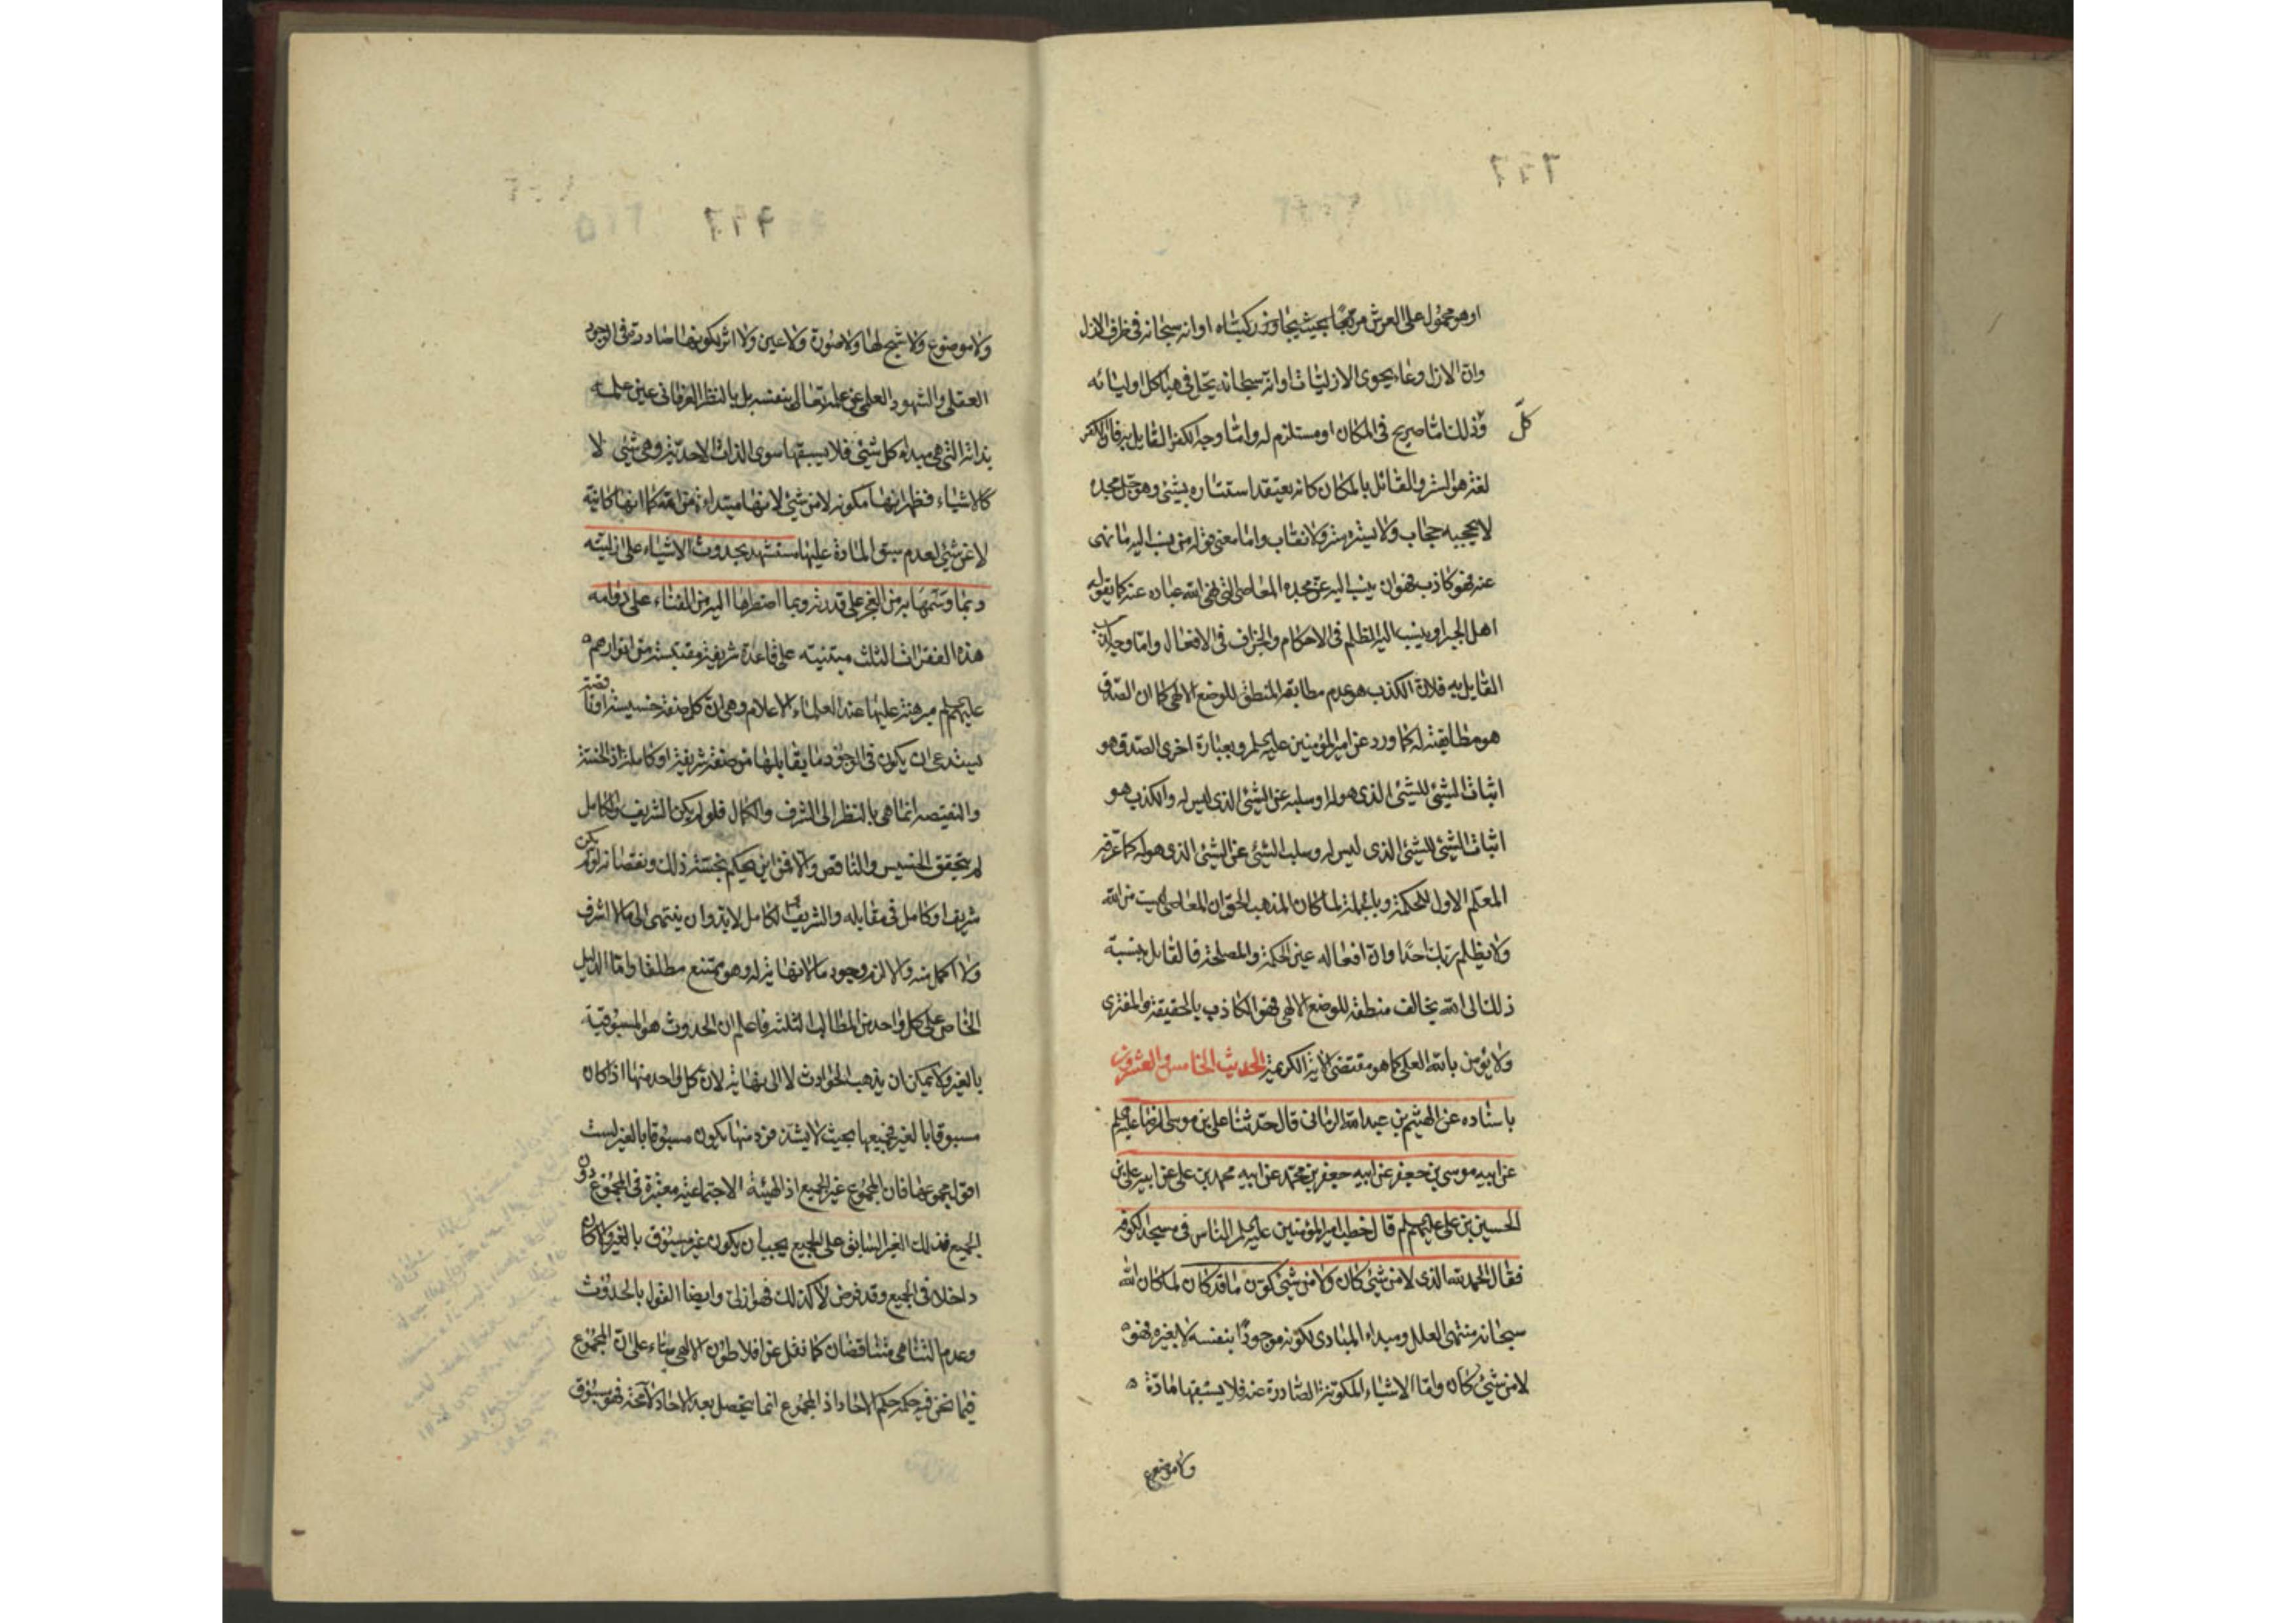 او هو محمول على العرش مرتجًا بحيث يتجاوز ركبتاه او انه سبحانه في ظرف الازل
وان الازل وعاء يحوى الازليات او انه سبحانه يتجلى في هياكل اوليائه
كلّ
وذلك اما صريح في المكان او مستلزم له واما وجه الكفر القايل به فان الكفر
لغة هو الستر والقائل بالمكان كانه يعتقد استتاره بشئ وهو جل مجده
لا يحجبه حجاب ولا يستره ستر ولا نقاب واما معنى قوله من نسب اليه ما نهى
عنه فهو كاذب فهو ان ينسب اليه عز مجده المعاصى التى نهى الله عباده عنه كما يقوله
اهل الجبر او ينسب اليه الظلم في الاحكام والجزاف في الافعال واما وجه كذب
القايل به فلان الكذب هو عدم مطابقة المنطق للوضع الالهى كما ان الصدق
هو مطابقته له كما ورد عن امير المؤمنين عليه السلم وبعبارة اخرى الصدق هو
اثبات الشئ للشئ الذى هو له او سلبه عن الشئ الذى ليس له والكذب هو
اثبات الشئ للشئ الذى ليس له وسلب الشئ عن الشئ الذى هو له كما عرفه
المعلم الاول للحكمة وبالجملة لما كان المذهب الحق ان المعاصى ليست من الله
ولا يظلم ربك احدًا وان افعاله عين الحكمة والمصلحة فالقايل بنسبة
ذلك الى الله يخالف منطقه للوضع الالهى فهو الكاذب بالحقيقة والمفترى
ولا يؤمن بالله العلى كما هو مقتضى الاية الكريمة الحديث الخامس والعشرون
باسناده عن الهيثم بن عبد الله الرمانى قال حدثنا على بن موسى الرضا عليه السلم
عن ابيه موسى بن جعفر عن ابيه جعفر بن محمد عن ابيه محمد بن على عن ابيه على بن
الحسين بن على عليهم السلم قال خطب امير المؤمنين عليه السلم الناس في مسجد الكوفة
فقال الحمد لله الذى لا من شئ كان ولا من شئ كوّن ما قد كان لما كان الله
سبحانه منتهى العلل ومبداء المبادى لكونه موجودًا بنفسه لا بغيره فهو
لا من شئ كان واما الاشياء المكونة الصادرة عنه فلا يسبقها مادّة
ولا موضوع
ولا موضوع ولا شبح لها ولا صورة ولا عين ولا اثر لكونها صادرة في الوجود
العقلى والشهود العلمى عن علمه تعالى بنفسه بل بالنظر العرفانى عين علمه
بذاته التى هى مبداء كل شئ فلا يسبقها سوى الذات الاحدية وهى شئ لا
كالاشياء فظهر انها مكونة لا من شئ لانها مبتداءة من الله كما انها كائنة
لا عن شئ لعدم سبق المادة عليها مستشهد بحدوث الاشياء على ازليته
وبما وسمها به من العجز على قدرته وبما اضطرها اليه من الفناء على دوامه
هذه الفقرات الثلث مبتنية على قاعدة شريفة مقتبسة من انوارهم
عليهم السلم مبرهنة عليها عند العلماء الاعلام وهى ان كل صفة خسيسة او ناقصة
يستدعى ان يكون في الوجود ما يقابلها من صفة شريفة او كاملة اذ الخسة
والنقيصة انما هى بالنظر الى الشرف والكمال فلو لم يكن الشريف والكامل
لم يتحقق الخسيس والناقص والا فمن اين يحكم بخسة ذلك ونقصانه لو لم يكن
شريف او كامل في مقابله والشريف الكامل لابد وان ينتهى الى ما لا اشرف
ولا اكمل منه والا لزم وجود ما لا نهاية له وهو ممتنع مطلقا واما الدليل
الخاص على كل واحد من المطالب الثلثة فاعلم ان الحدوث هو المسبوقية
بالغير ولا يمكن ان يذهب الحوادث لا الى نهاية لان كل واحد منها اذا كان
مسبوقا بالغير فجميعها بحيث لا يشذ فرد منها يكون مسبوقا بالغير لست
اقول مجموعها فان المجموع غير الجميع اذ الهيئة الاجتماعية معتبرة في المجموع دون
الجميع فذلك الغير السابق على الجميع يجب ان يكون غير مسبوق بالغير والا لكان
داخلا في الجميع وقد فرض لا كذلك فهو ازلى وايضا القول بالحدوث
وعدم التناهى متناقضان كما نقل عن افلاطون الالهى بناء على ان المجموع
فيما نحن فيه حكمه حكم الاحاد اذ المجموع انما يتحصل بعد الاحاد لا محة فهو مسبوق